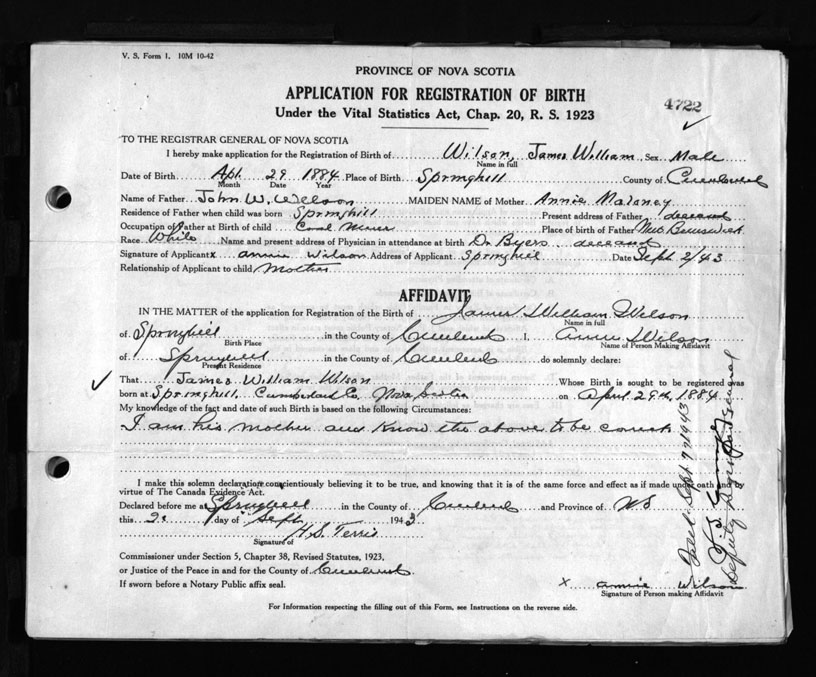 V. S. Form 1. 10M 10-42
PROVINCE OF NOVA SCOTIA
APPLICATION FOR REGISTRATION OF BIRTH
4722
Under the Vital Statistics Act, Chap. 20, R. S. 1923
TO THE REGISTRAR GENERAL OF NOVA SCOTIA
I hereby make application for the Registration of Birth of Wilson, James William Sex Male
Name in full
Date of Birth Apl. 29 1884 Place of Birth Springhill County of Cumberland
Month Date Year
Name of Father John W. Wilson MAIDEN NAME of Mother Annie Maloney
Residence of Father when child was born Springhill Present address of Father deceased
Occupation of Father at Birth of child Coal Miner Place of birth of Father New Brunswick
Race White Name and present address of Physician in attendance at birth Dr Byers deceased
Signature of Applicant x annie Wilson Address of Applicant Springhill Date Sept 2/43
Relationship of Applicant to child Mother
AFFIDAVIT
IN THE MATTER of the application for Registration of the Birth of James William Wilson
Name in full
of Springhill in the County of Cumberland I, Annie Wilson
Birth Place Name of Person Making Affidavit
of Springhill in the County of Cumberland do solemnly declare:
Present Residence
That James William Wilson Whose Birth is sought to be registered was
born at Springhill, Cumberland Co. Nova Scotia on April 29th, 1884
My knowledge of the fact and date of such Birth is based on the following Circumstances:
I am his mother and know the above to be correct
I make this solemn declaration conscientiously believing it to be true, and knowing that it is of the same force and effect as if made under oath and by
virtue of The Canada Evidence Act.
Declared before me at Springhill in the County of Cumberland and Province of NS
this 2 day of Sept 1943
H. S. Terris
Signature of
Commissioner under Section 5, Chapter 38, Revised Statutes, 1923,
or Justice of the Peace in and for the County of Cumberland
If sworn before a Notary Public affix seal.
x annie Wilson
Signature of Person making Affidavit
For Information respecting the filling out of this Form, see Instructions on the reverse side.
Sept 7 1943
Deputy Registrar General